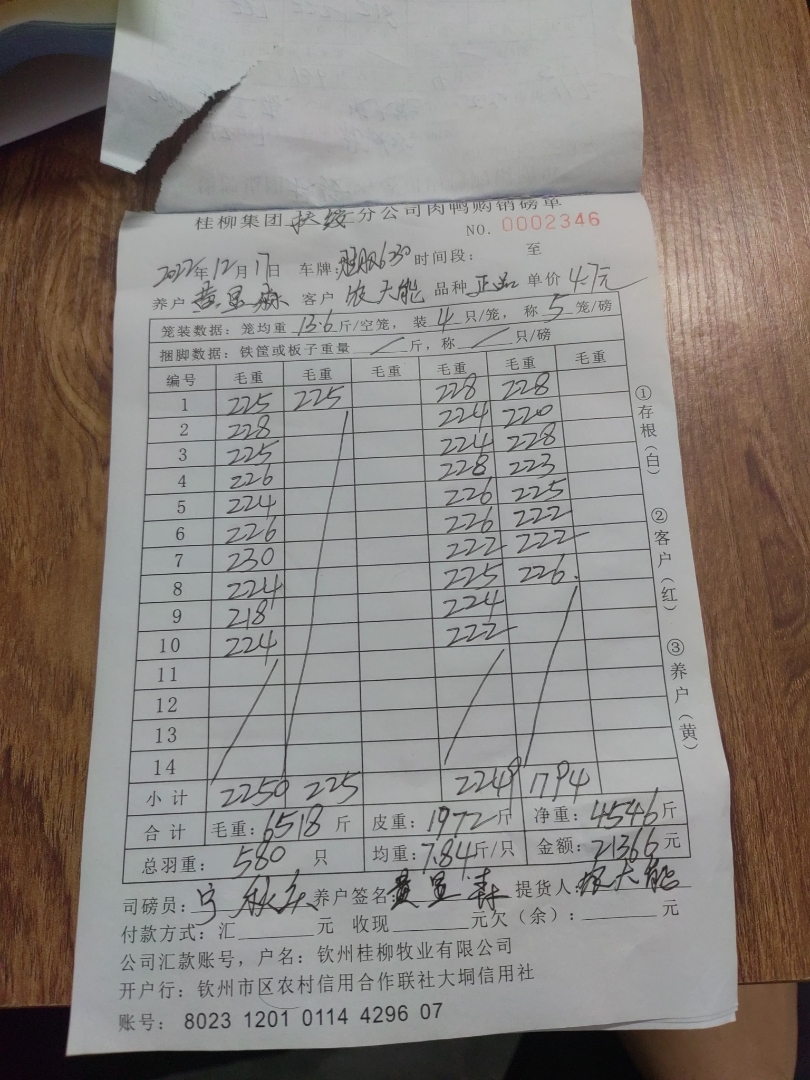 桂柳集团扶绥分公司肉鸭购销磅单
NO. 0002346
2022年12月17日 车牌: 630 时间段: 至
养户 黄显森 客户 能 品种 正品 单价 4.7元
笼装数据: 笼均重 13.6 斤/空笼, 装 4 只/笼, 称 5 笼/磅
捆脚数据: 铁筐或板子重量 / 斤, 称 / 只/磅
编号 毛重 毛重 毛重 毛重 毛重 毛重
1 225 225 228 228
2 228 224 220
3 225 224 228
4 226 228 223
5 224 226 225
6 226 226 222
7 230 222 222
8 224 225 226.
9 218 224
10 224 222
11
12
13
14
小计 2250 225 2249 1794
合计 毛重: 6518 斤 皮重: 1972 斤 净重: 4546 斤
总羽重: 580 只 均重: 7.84 斤/只 金额: 21366 元
司磅员: 养户签名: 黄显森 提货人: 能
付款方式: 汇 元 收现 元 欠(余): 元
公司汇款账号, 户名: 钦州桂柳牧业有限公司
开户行: 钦州市区农村信用合作联社大垌信用社
账号: 8023 1201 0114 4296 07
①存根(白)
②客户(红)
③养户(黄)